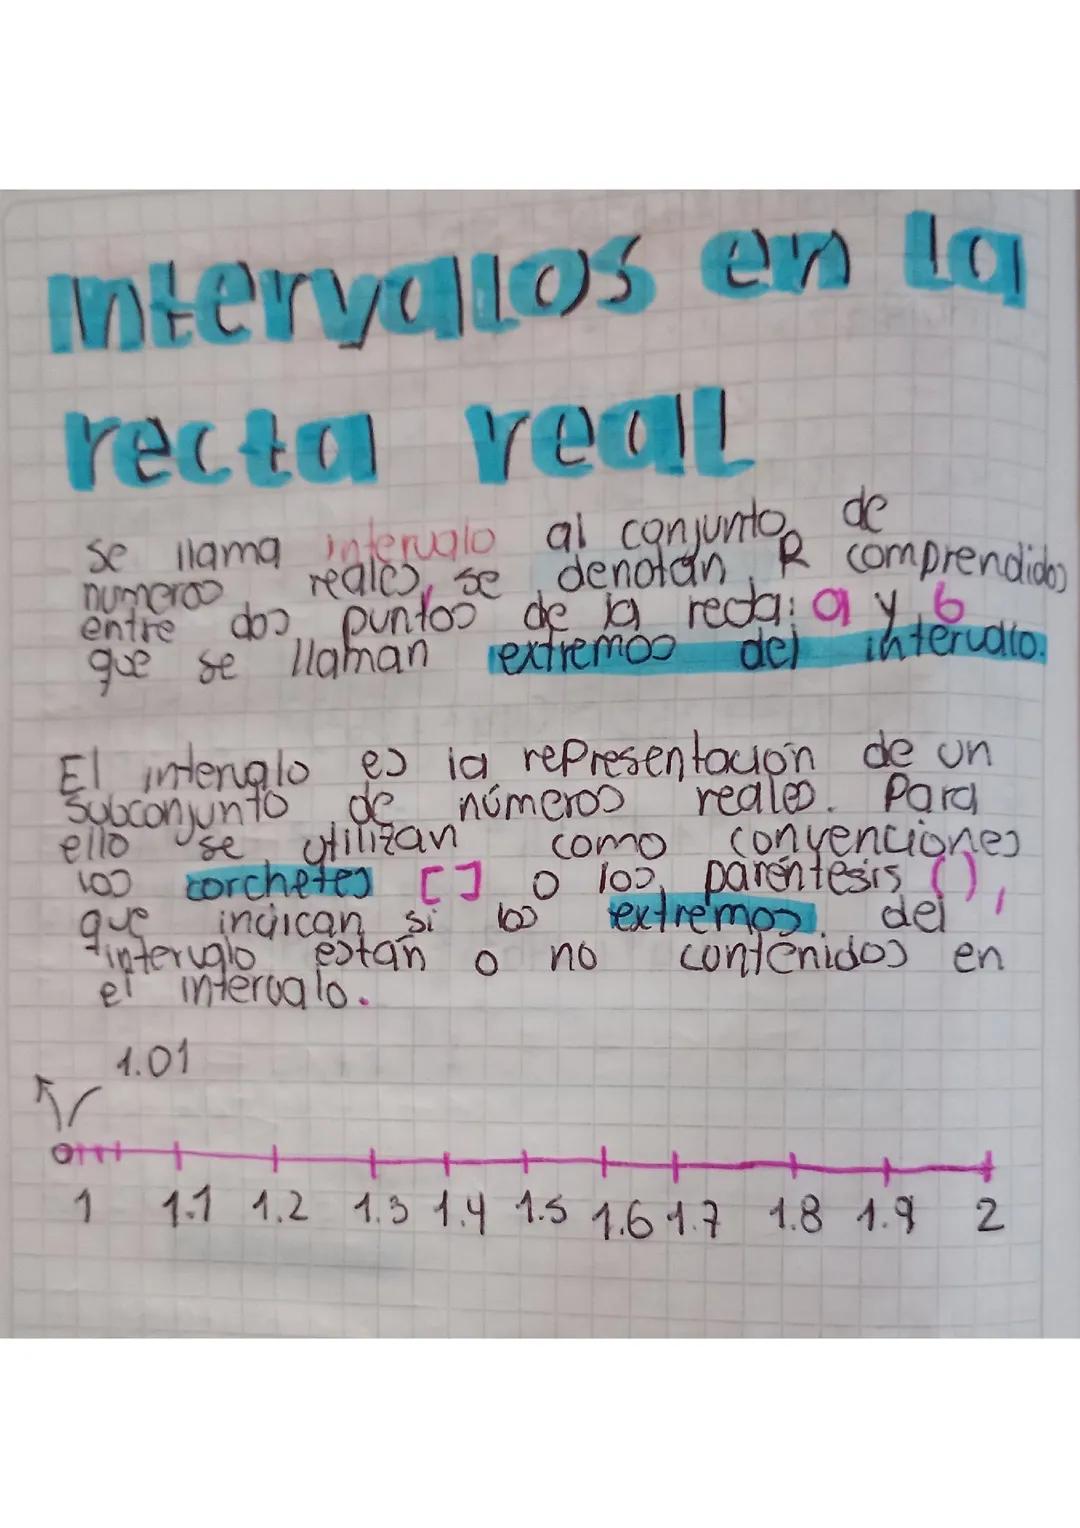 Intervalos en la
recta real
se llama intervalo al conjunto de
numeros reales, se denotan R comprendidos
entre dos puntos de la recta: a y b
que se llaman extremos del intervalo.
El intervalo es la representación de un
subconjunto de números reales. Para
ello se utilizan como convenciones
los corchetes [ ] o los paréntesis ( ),
que indican si los extremos del
intervalo están o no contenidos en
el intervalo.
1.01
1 1.1 1.2 1.3 1.4 1.5 1.6 1.7 1.8 1.9 2